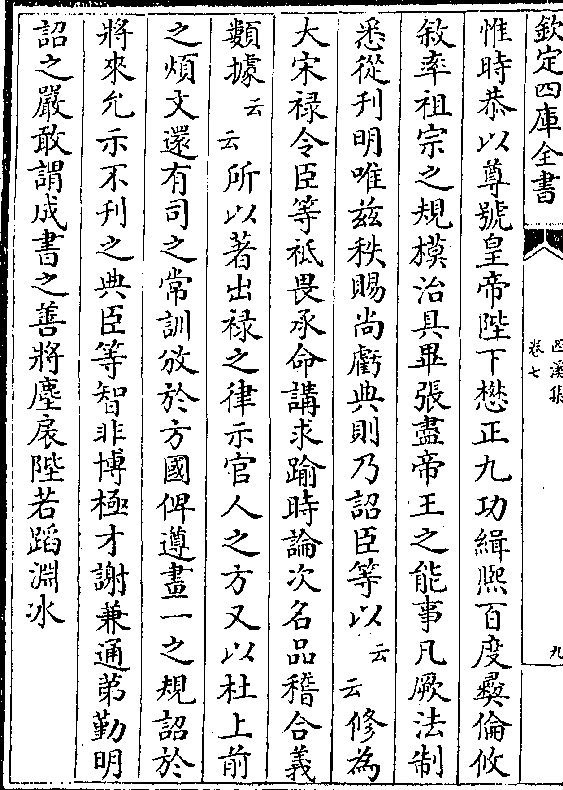 欽定四庫全書
西溪集
卷七
九
惟時恭以尊號皇帝陛下懋正九功緝熙百度彛倫攸
敘率祖宗之規模治具畢張盡帝王之能事凡厥法制
悉從刋明唯兹秩賜尚虧典則乃詔臣等以云云修為
大宋禄令臣等祗畏承命講求踰時論次名品稽合義
類據云云所以著出禄之律示官人之方又以杜上前
之煩文還有司之常訓放於方國俾遵畫一之規詔於
將來允示不刋之典臣等智非博極才謝兼通第勤明
詔之嚴敢謂成書之善將塵扆陛若蹈淵冰